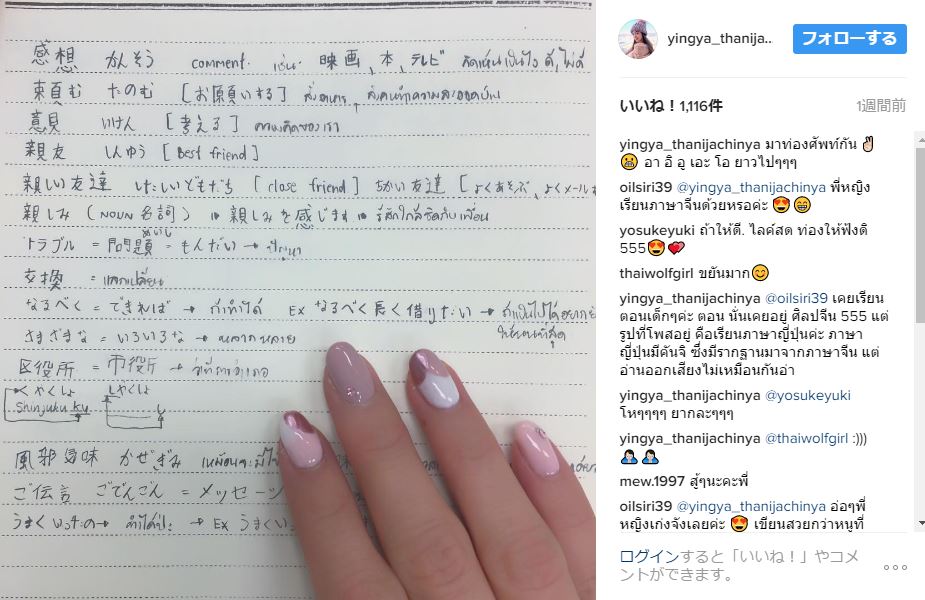 感想 かんそう comment. เช่น 映画, 本, テレビ คิดเห็นเป็นไง ดี, ไม่ดี
頼む たのむ [お願いする] สั่งอาหาร,
意見 いけん [考える] ความคิดของเรา
親友 しんゆう [Best friend]
親しい友達 したしいともだち [close friend] ちかい友達 [よくあそぶ, よくメール
親しみ (NOUN 名詞) 親しみを感じます รู้สึกใกล้ชิดกับเพื่อน
トラブル = 問題 = もんだい → ปัญหา
交換 = แลกเปลี่ยน
なるべく = できれば → ถ้าทำได้ EX なるべく長く借りたい → ถ้าเป็นไปได้อยากยืม
ให้นานที่สุด
さまざまな = いろいろな → หลากหลาย
区役所 = 市役所 → ที่ว่าการอำเภอ
くやくしょ しやくしょ
Shinjuku ku
風邪気味 かぜぎみ เหมือนจะมีไข้
ご伝言 ごでんごん = メッセージ
うまく いったの → ทำได้ปะ → EX うまくい
yingya_thanija..
フォローする
いいね！1,116件
1週間前
yingya_thanijachinya มาท่องศัพท์กัน ✌🏻
😬 อา อิ อุ เอะ โอ ยาวไปๆๆๆ
oilsiri39 @yingya_thanijachinya พี่หญิง
เรียนภาษาจีนด้วยหรอค่ะ 😍😁
yosukeyuki ถ้าให้ดี. ไลค์สด ท่องให้ฟังดิ
555😍💕
thaiwolfgirl ขยันมาก😊
yingya_thanijachinya @oilsiri39 เคยเรียน
ตอนเด็กๆค่ะ ตอน นั่นเคยอยู่ ศิลปจีน 555 แต่
รูปที่โพสอยู่ คือเรียนภาษาญี่ปุ่นค่ะ ภาษา
ญี่ปุ่นมีคันจิ ซึ่งมีรากฐานมาจากภาษาจีน แต่
อ่านออกเสียงไม่เหมือนกันอ่า
yingya_thanijachinya @yosukeyuki
โหๆๆๆ ยากละๆๆๆ
yingya_thanijachinya @thaiwolfgirl :)))
🙇🏻🙇🏻
mew.1997 สู้ๆนะคะพี่
oilsiri39 @yingya_thanijachinya อ่อๆพี่
หญิงเก่งจังเลยค่ะ 😍 เขียนสวยกว่าหนูที่
ログインすると「いいね！」やコメ
ントができます。